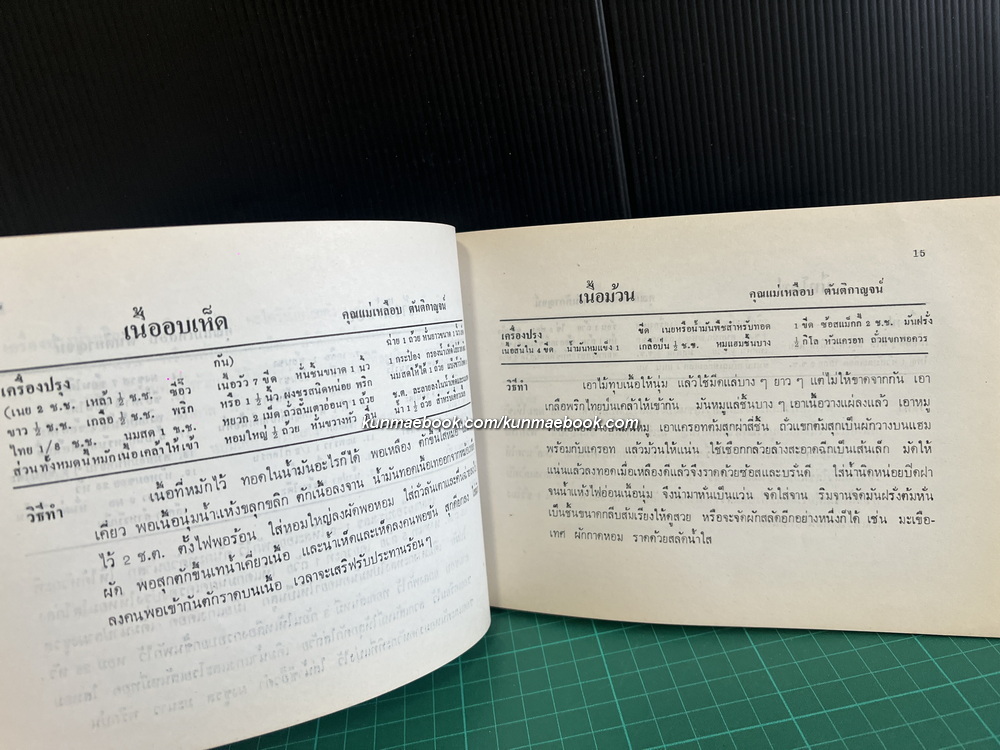 เนื้ออบเห็ด
คุณแม่เหลือบ ตันติกาญจน์
เครื่องปรุง
กัน)
(เนย 2 ช.ช. เหล้า ½ ช.ช. ซีอิ๊ว
เนื้อวัว 7 ขีด หั่นชิ้นขนาด 1 นิ้ว
ขาว ½ ช.ช. เกลือ ½ ช.ช. พริก
หรือ 1 ½ นิ้ว ผงชูรสนิดหน่อย พริก
ไทย 1/8 ช.ช. นมสด 1 ช.ช.
หยวก 2 เม็ด ถั่วลันเตาอ่อนๆ 1 ถ้วย
ส่วนทั้งหมดนี้หมักเนื้อเคล้าให้เข้า
หอมใหญ่ ½ ถ้วย หั่นขวางหัว ต้น
วิธีทำ
เนื้อที่หมักไว้ ทอดในน้ำมันอะไรก็ได้ พอเหลือง ตักขึ้นใส่หม้อ
เคี่ยว พอเนื้อนุ่มน้ำแห้งขลุกขลิก ตักเนื้อลงจาน น้ำมันทอดเนื้อเทออกจากกระทะ
ไว้ 2 ช.ต. ตั้งไฟพอร้อน ใส่หอมใหญ่ลงผัดพอหอม ใส่ถั่วลันเตาและ
ผัด พอสุกตักขึ้นเทน้ำเคี่ยวเนื้อ และน้ำเห็ดและเห็ดลงคนพอข้น สุกดียกลง
ลงคนพอเข้ากันตักราดบนเนื้อ เวลาจะเสริฟรับประทานร้อนๆ
15
เนื้อม้วน
คุณแม่เหลือบ ตันติกาญจน์
เครื่องปรุง
ขีด เนยหรือน้ำมันพืชสำหรับทอด
1 ขีด ซ้อสแม็กกี้ 2 ช.ช. มันฝรั่ง
เนื้อสันใน 4 ขีด น้ำมันหมูแข็ง 1
เกลือป่น ½ ช.ช. หมูแฮมชิ้นบาง
½ กิโล หัวแครอท ถั่วแขกพอควร
วิธีทำ
เอาไม้ทุบเนื้อให้นุ่ม แล้วใช้มีดแล่บาง ๆ ยาว ๆ แต่ไม่ให้ขาดจากกัน เอา
เกลือพริกไทยป่นเคล้าให้เข้ากัน มันหมูแล่ชิ้นบาง ๆ เอาเนื้อวางแผ่ลงแล้ว เอาหมู
หมู เอาแครอทต้มสุกผ่าสี่ชิ้น ถั่วแขกต้มสุกเป็นฝักวางบนแฮม
พร้อมกับแครอท แล้วม้วนให้แน่น ใช้เชือกกล้วยล้างสะอาดฉีกเป็นเส้นเล็ก มัดให้
แน่นแล้วลงทอดเมื่อเหลืองดีแล้วจึงราดด้วยซ้อสและบรั่นดี ใส่น้ำนิดหน่อยปิดฝา
จนน้ำแห้งไฟอ่อนเนื้อนุ่ม จึงนำมาหั่นเป็นแว่น จัดใส่จาน ริมจานจัดมันฝรั่งต้มหั่น
เป็นชิ้นขนาดกลีบส้มเรียงให้ดูสวย หรือจะจัดผักสลัดอีกอย่างหนึ่งก็ได้ เช่น มะเขือ-
เทศ ผักกาดหอม ราดด้วยสลัดน้ำใส
kunmaebook.com/kunmaebook.com